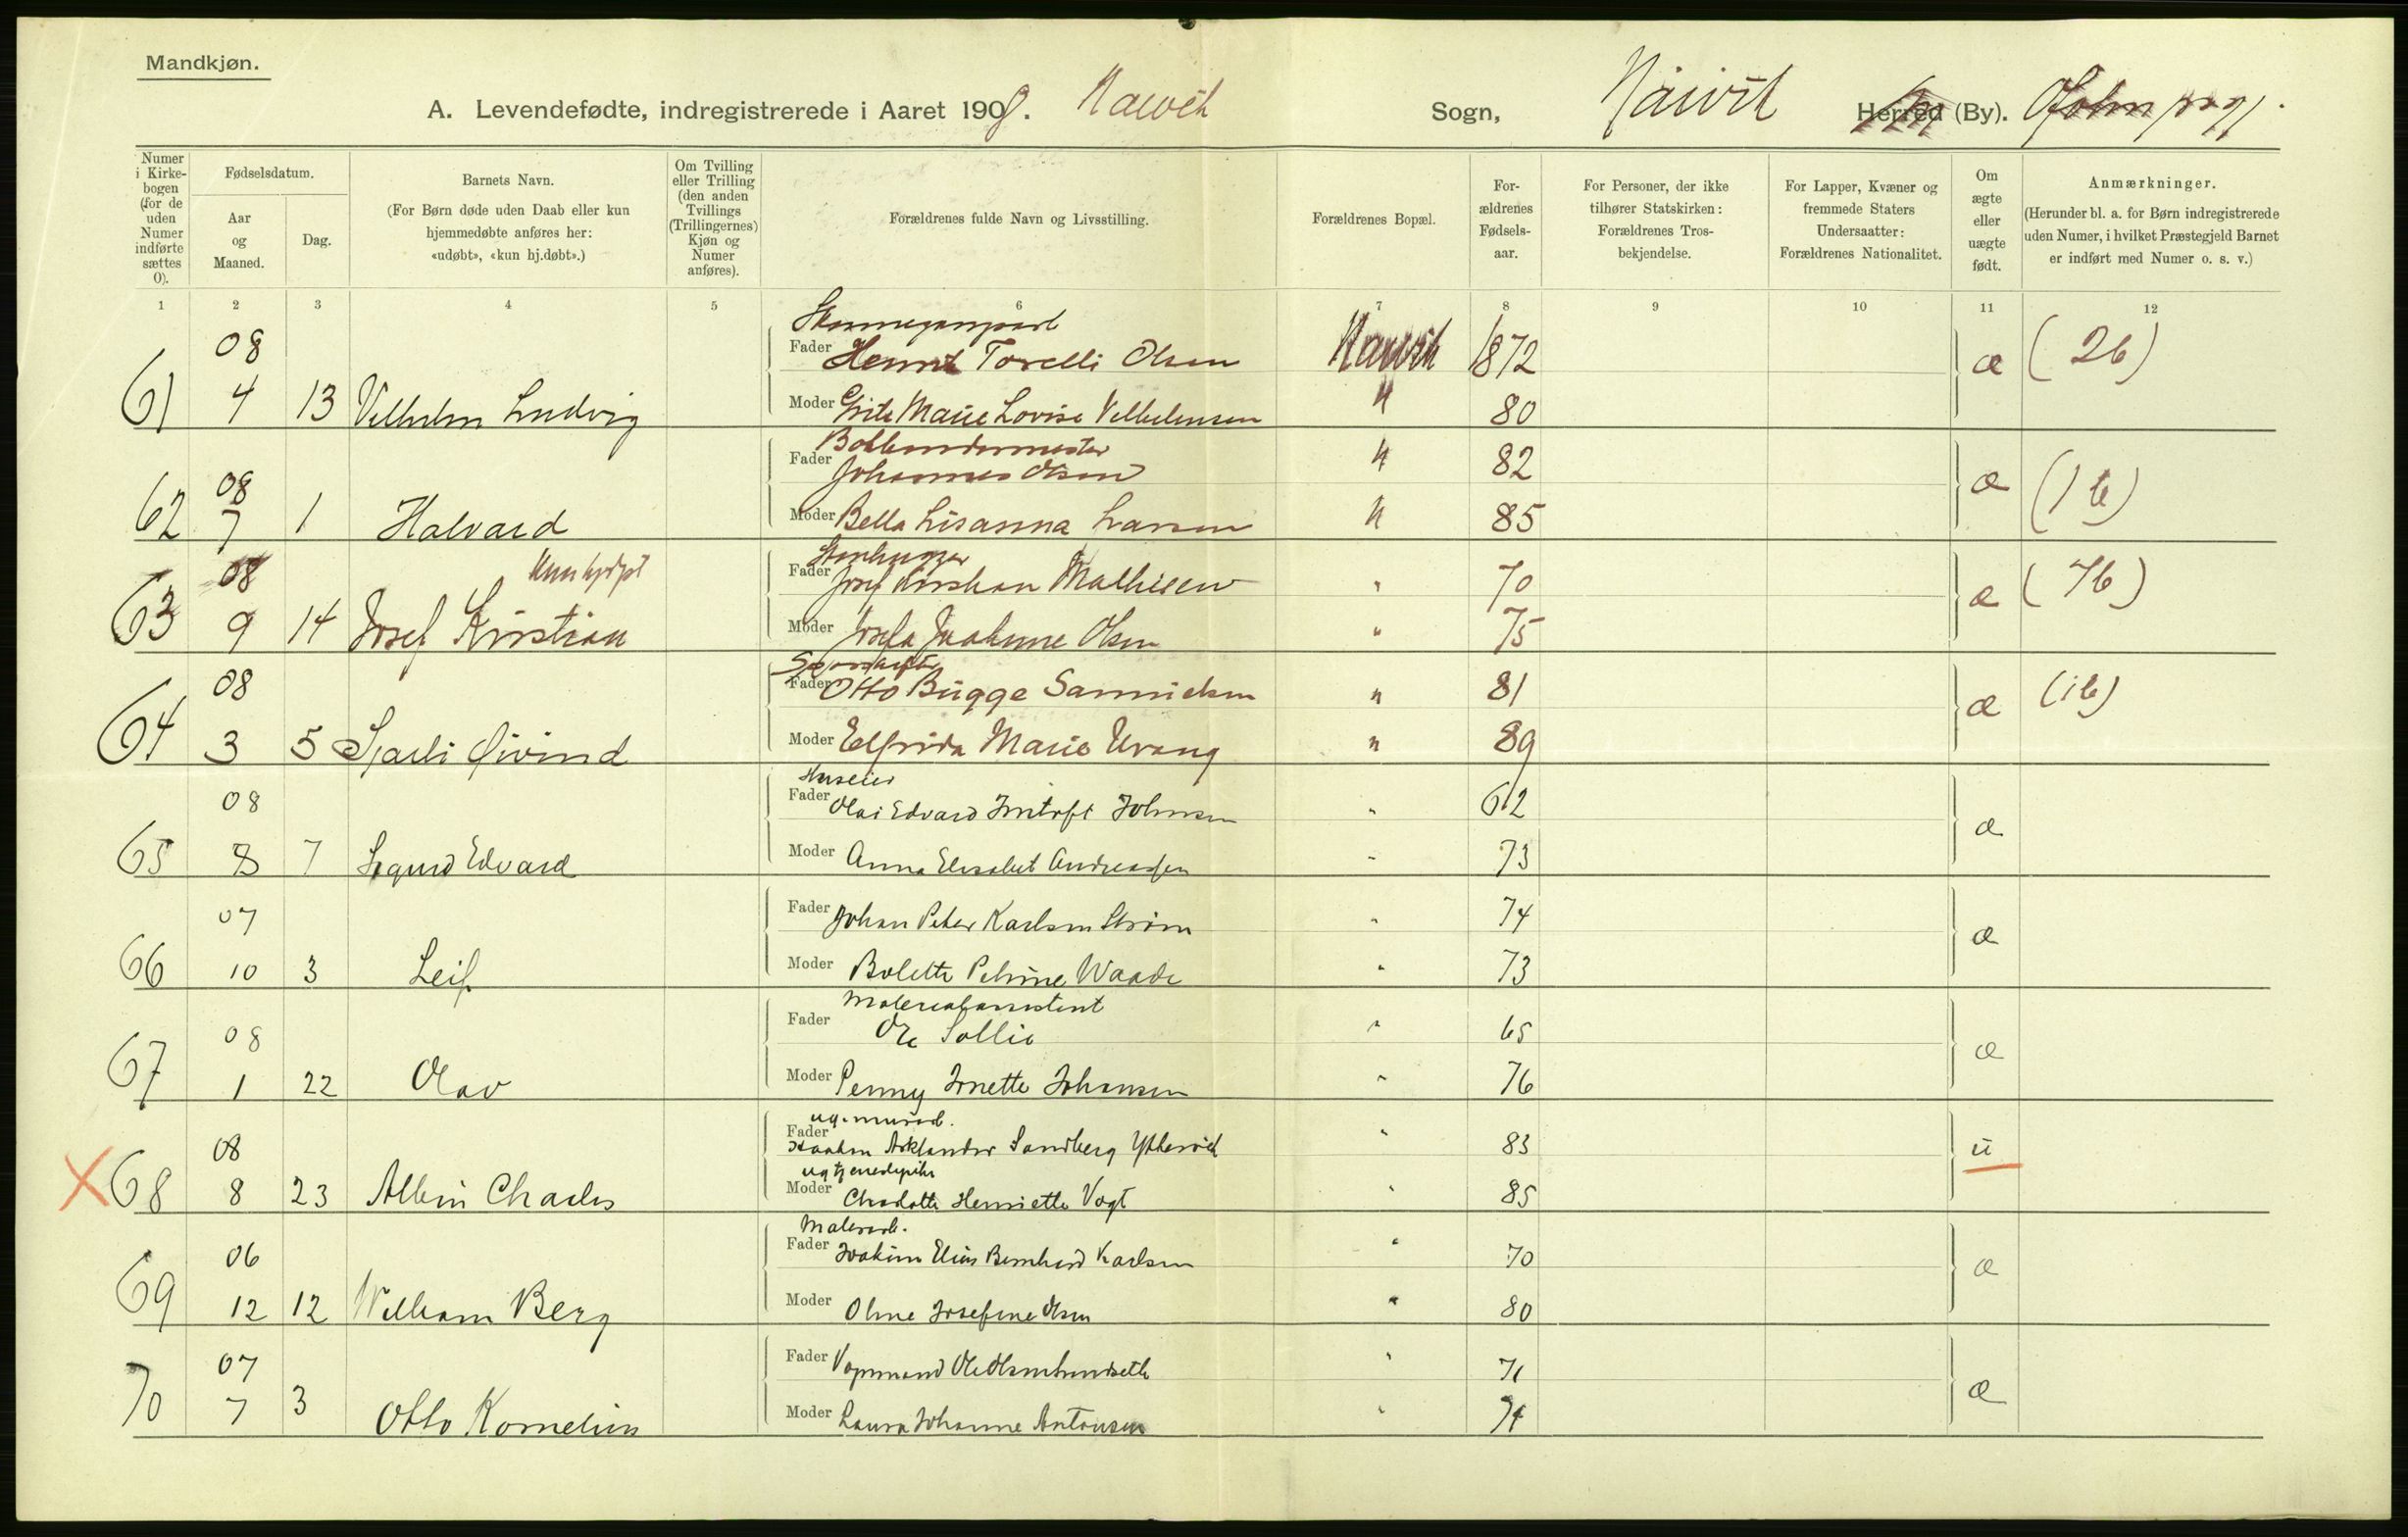 Mandkjøn.
A. Levendefødte, indregistrerede i Aaret 1908. Narvik Sogn, Narvik Herred (By). Ofoten prgj.
Numer i Kirkebogen (for de uden Numer indførte sættes 0).
Fødselsdatum.
Aar og Maaned.
Dag.
Barnets Navn.
(For Børn døde uden Daab eller kun hjemmedøbte anføres her: «udøbt», «kun hj.døbt».)
Om Tvilling eller Trilling (den anden Tvillings (Trillingernes) Kjøn og Numer anføres).
Forældrenes fulde Navn og Livsstilling.
Forældrenes Bopæl.
Forældrenes Fødselsaar.
For Personer, der ikke tilhører Statskirken: Forældrenes Trosbekjendelse.
For Lapper, Kvæner og fremmede Staters Undersaatter: Forældrenes Nationalitet.
Om ægte eller uægte født.
Anmærkninger.
(Herunder bl. a. for Børn indregistrerede uden Numer, i hvilket Præstegjeld Barnet er indført med Numer o. s. v.)
1 2 3 4 5 6 7 8 9 10 11 12
61 08 4 13 Vilhelm Ludvig
Fader Torelli Olsen Narvik 1872 æ (26)
Moder Marie Lovise Vilhelmsen " 80
62 08 7 1 Halvard
Fader Johannes Olsen " 82 æ (16)
Moder Bella Lisanna Larsen " 85
63 08 9 14 Josef Kristian
Stenhugger
Fader Josef Kristian Mathisen " 70 æ (76)
Moder Josefa Olsen " 75
64 08 3 5 Øivind
Fader Otto Bugge Samuelsen " 81 æ (16)
Moder Elfrida Marie Urang " 89
65 08 8 7 Sigurd Edvard
Huseier
Fader Olai Edvard Johnsen " 62 æ
Moder Anna Elisabet Andreassen " 73
66 07 10 3 Leif
Fader Johan Peter Karlsen Strøm " 74 æ
Moder Bolette Petrine Waade " 73
67 08 1 22 Olav
Materialassistent
Fader Ole Sollie " 65 æ
Moder Penny Johansen " 76
X 68 08 8 23 Albin Charles
Fader Sandberg Yttervik " 83 u
Moder Charlotte Henriette Vogt " 85
69 06 12 12 William Berg
Fader Joakim Elias Bernhard Karlsen " 70 æ
Moder Oline Josefine Olsen " 80
70 07 7 3 Otto Kornelius
Fader Vognmand " 71 æ
Moder Laura Johanne Antonsen " 74